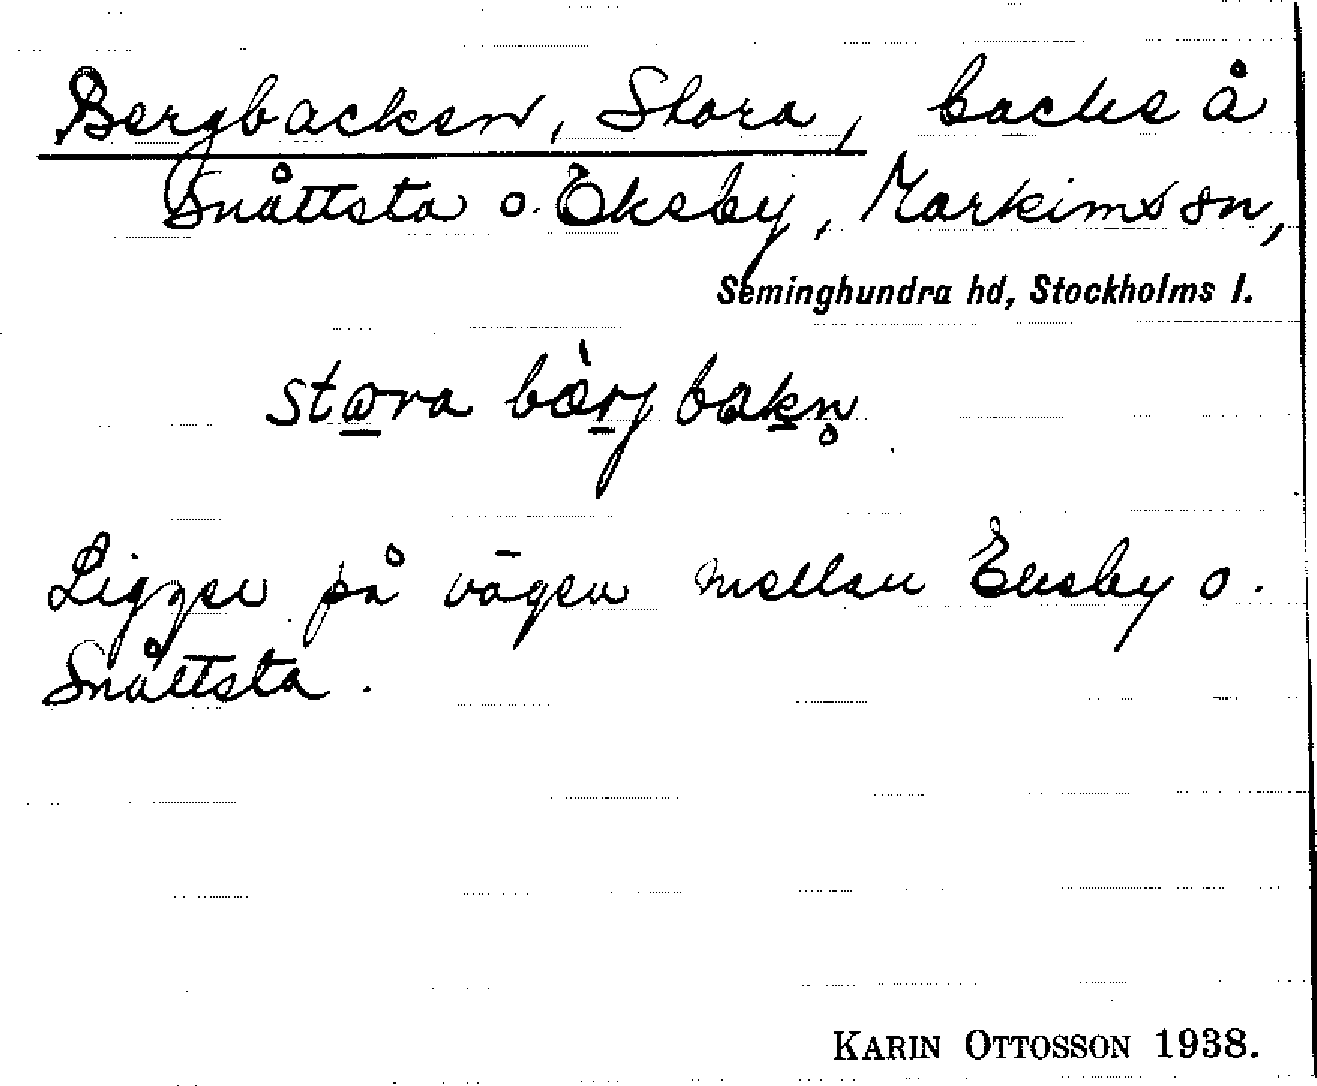 Bergbacken, Stora, backe å
Snåttsta o. Eksby, Markims sn,
Seminghundra hd, Stockholms l.
Ligger på vägen mellan Eksby o.
Snåttsta.
KARIN OTTOSSON 1938.